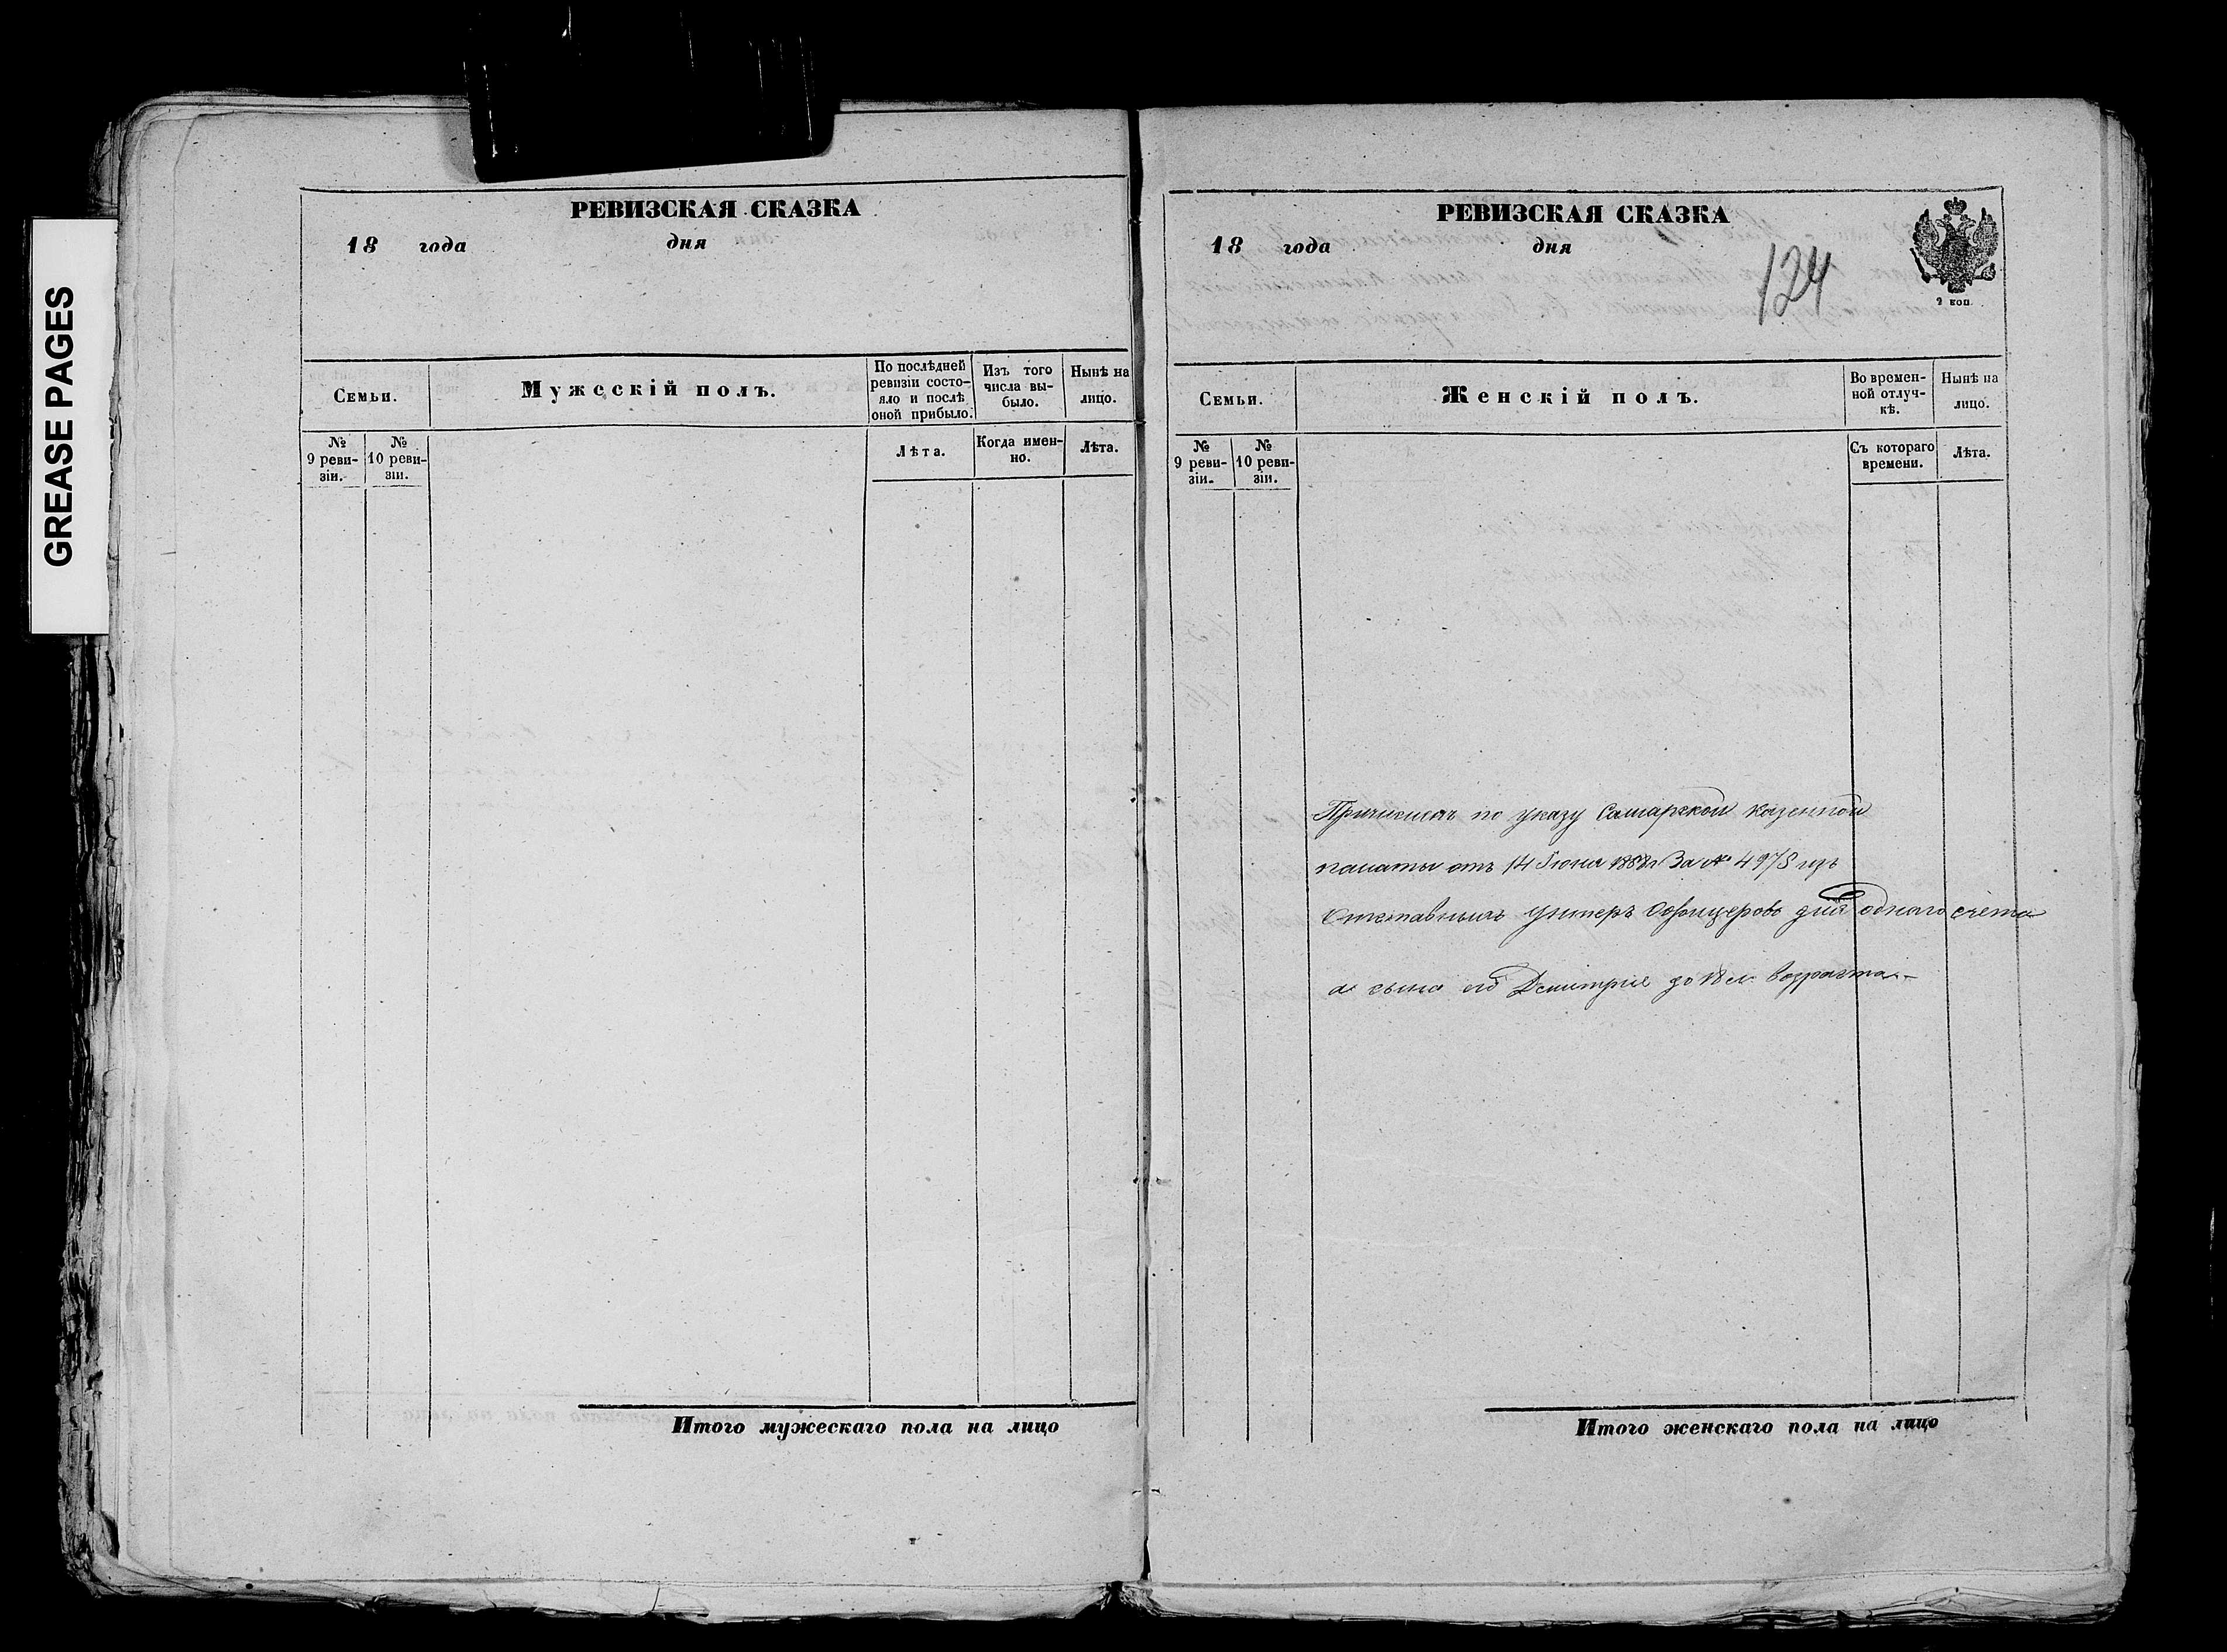 GREASE PAGES
РЕВИЗСКАЯ СКАЗКА
18 года дня
Семьи.
Мужескій полъ.
По послѣдней ревизіи состояло и послѣ оной прибыло.
Изъ того числа выбыло.
Нынѣ на лицо.
№ 9 ревизіи.
№ 10 ревизіи.
Лѣта.
Когда именно.
Лѣта.
Итого мужескаго пола на лицо
РЕВИЗСКАЯ СКАЗКА
18 года дня
124
2 коп.
Семьи.
Женскій полъ.
Во временной отлучкѣ.
Нынѣ на лицо.
№ 9 ревизіи.
№ 10 ревизіи.
Съ котораго времени.
Лѣта.
по указу Самарской казенной
палаты отъ 14 Іюня За № 4975 изъ
Отставныхъ Унтеръ Офицеровъ для одного счета
а сына его Дмитрія до 18 л. возраста.
Итого женскаго пола на лицо